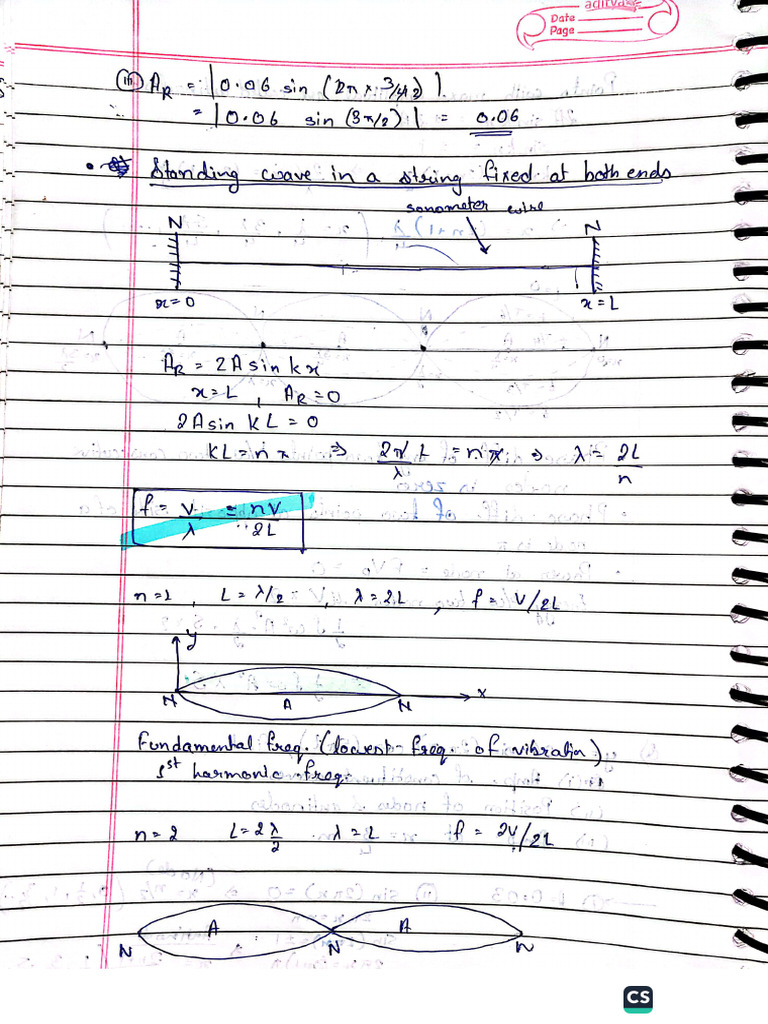 aditya
Date
Page
(iii) A_R = |0.06 sin (2π x 3/4 2)|
= |0.06 sin (3π/2)| = 0.06
Standing wave in a string fixed at both ends
sonometer wire
N N
x=0 x=L
A_R = 2A sin kx
x=L , A_R=0
2A sin KL = 0
KL = n π ⇒ 2π/λ L = n π ⇒ λ = 2L/n
f = V/λ = nV/2L
n=1 , L=λ/2 , λ=2L , f = V/2L
y
N A N x
Fundamental freq. (lowest freq. of vibration)
1st harmonic freq.
n=2 L=2λ/2 λ=L f = 2V/2L
A A
N N N
CS